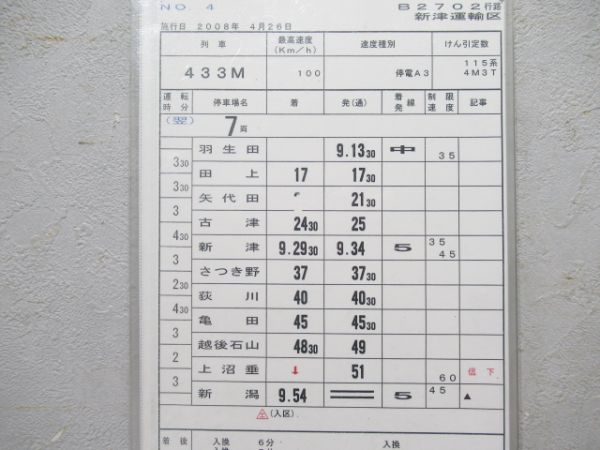 NO. 4
B2702行路
新津運輸区
施行日 2008年 4月26日
列車 最高速度(Km/h) 速度種別 けん引定数
433M 100 停電A3 115系 4M3T
運転時分 停車場名 着 発(通) 着発線 制限速度 記事
(翌) 7両
羽生田 9.13 30 中 35
3 30
田上 17 17 30
3 30
矢代田 21 30
3
古津 24 30 25
4 30
新津 9.29 30 9.34 5 35 45
3
さつき野 37 37 30
2 30
荻川 40 40 30
4 30
亀田 45 45 30
3
越後石山 48 30 49
2
上沼垂 ↓ 51 60 信下
3
新潟 9.54 5 45 ▲
(入区)
着後 入換 6分 入換